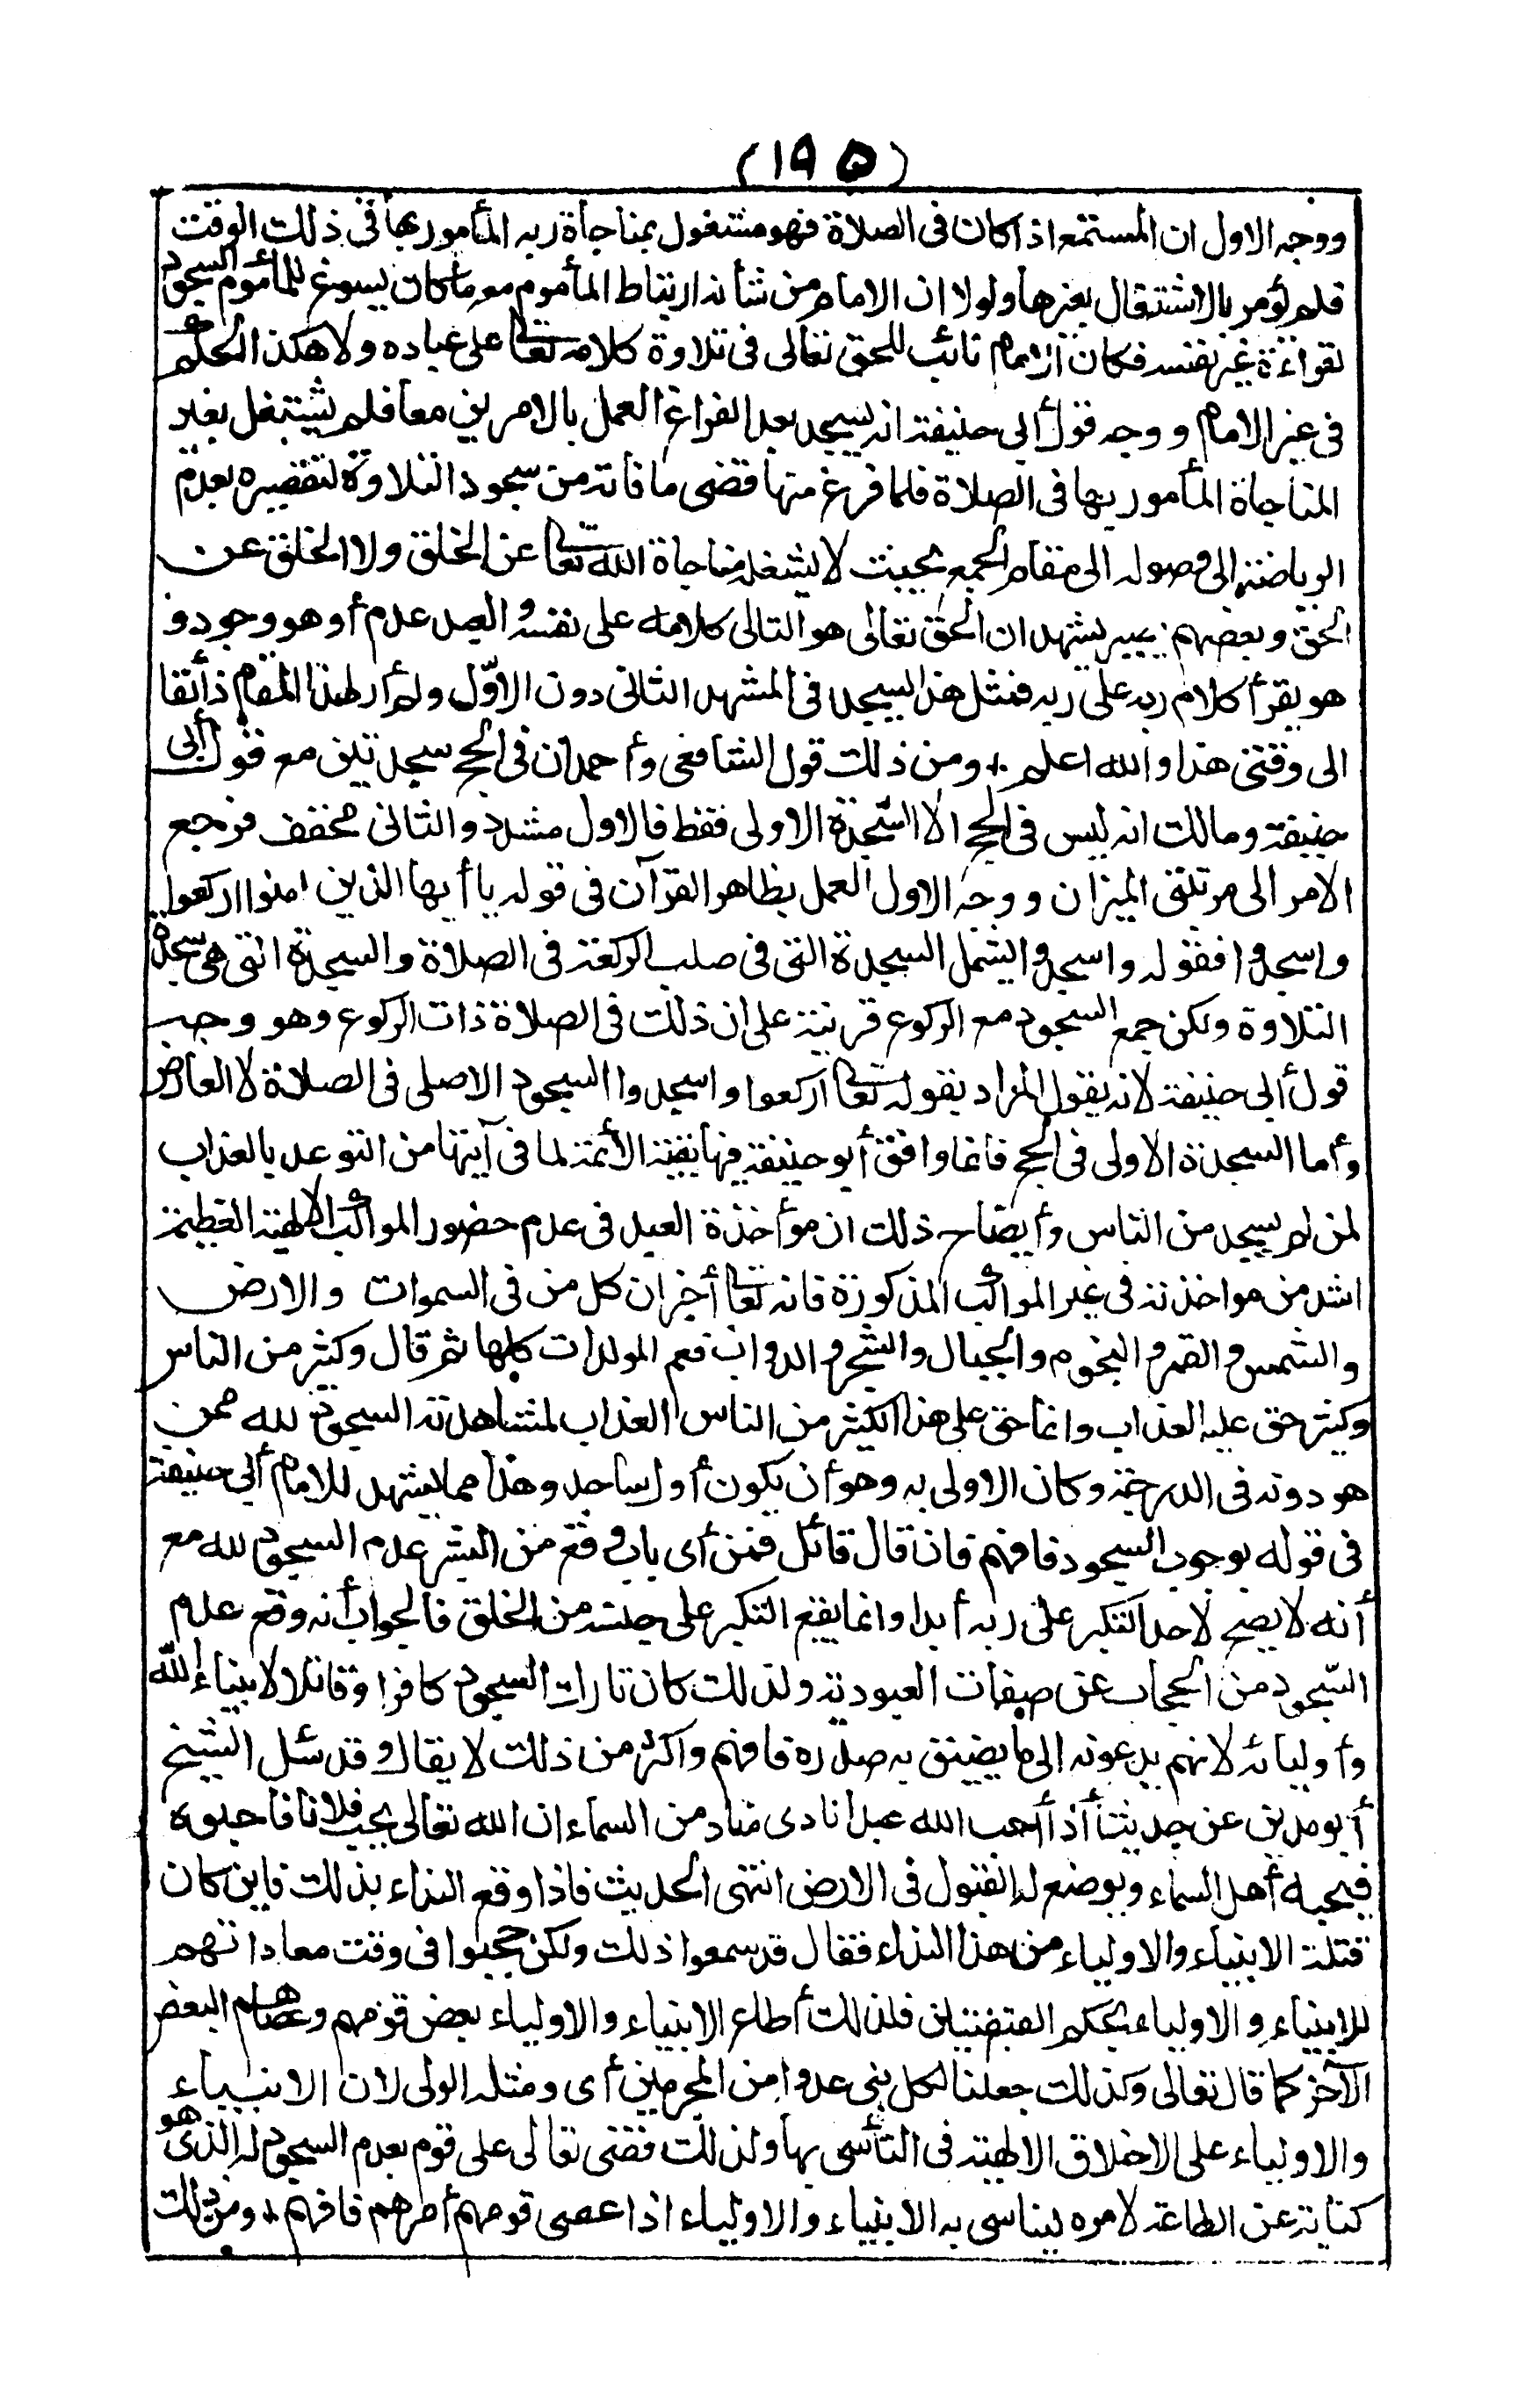 (١٩٥)
ووجه الاول ان المستمع اذا كان فى الصلاة فهو مشتغول بمناجاة ربه المأمور بها فى ذلك الوقت
فلم يؤمر بالاشتغال بغيرها ولولا ان الامام من شأنه ارتباط المأموم معه ما كان يسوغ للمأموم السجود
لقراءة غير نفسه فكان الامام نائب للحق تعالى فى تلاوة كلامه تعالى على عباده ولا هكذا الحكم
فى غير الامام ووجه قول أبى حنيفة انه يسجد بعد الفراغ العمل بالامرين معا فلم يشتغل بغير
المناجاة المأمور بها فى الصلاة فلما فرغ منها قضى ما فاته من سجود التلاوة لتقصيره بعدم
الرياضة الى وصوله الى مقام الجمع بحيث لا يشغله مناجاة الله تعالى عن الخلق ولا الخلق عن
الحق وبعضهم يشهد ان الحق تعالى هو التالى كلامه على نفسه والعبد عدم أو هو وجود و
هو يقرأ كلام ربه على ربه فمثل هذا يسجد فى المشهد الثانى دون الاوّل ولم أر لهذا المقام ذائقا
الى وقتى هذا والله اعلم * ومن ذلك قول الشافعى وأحمد ان فى الحج سجدتين مع قول أبى
حنيفة ومالك انه ليس فى الحج الا السجدة الاولى فقط فالاول مشدد والثانى مخفف فرجع
الامر الى مرتبتى الميزان ووجه الاول العمل بظاهر القرآن فى قوله يا أيها الذين امنوا اركعوا
واسجدوا فقوله واسجدوا يشمل السجدة التى فى صلب الركعة فى الصلاة والسجدة التى هى سجدة
التلاوة ولكن جمع السجود مع الركوع قرينة على ان ذلك فى الصلاة ذات الركوع وهو وجه
قول أبى حنيفة لانه يقول المراد بقوله تعالى اركعوا واسجدوا السجود الاصلى فى الصلاة لا العارض
وأما السجدة الاولى فى الحج فانما وافق أبو حنيفة فيها بقية الأئمة لما فى آيتها من التوعد بالعذاب
لمن لم يسجد من الناس وأيضاح ذلك ان مؤأخذة العبد فى عدم حضور المواكب الالهية العظيمة
اشد من مواخذته فى غير المواكب المذكورة فانه تعالى أخبر ان كل من فى السموات والارض
والشمس والقمر والنجوم والجبال والشجر والدواب فعم المولدات كلها ثم قال وكثير من الناس
وكثير حق عليه العذاب وانما حق على هذا الكثير من الناس العذاب لمشاهدته السجود لله ممن
هو دونه فى الدرجة وكان الاولى به وهو أن يكون أول ساجد وهذا مما يشهد للامام أبى حنيفة
فى قوله بوجوب السجود فافهم فان قال قائل فمن أى باب وقع من البشر عدم السجود لله مع
أنه لا يصح لاحد التكبر على ربه أبدا وانما يقع التكبر على جنسه من الخلق فالجواب أنه وقع عدم
السّجود من الحجاب عن صفات العبودية ولذلك كان تارك السجود كافرا وقاتلا لانبياء الله
وأوليائه لانهم يدعونه الى ما يضيق به صدره فافهم واكثر من ذلك لا يقال وقد سئل الشيخ
أبو مدين عن حديث أذا أحب الله عبدا نادى مناد من السماء ان الله تعالى يحب فلانا فاحبوه
فيحبه أهل السماء ويوضع له القبول فى الارض انتهى الحديث فاذا وقع النداء بذلك فاين كان
قتلة الانبياء والاولياء من هذا النداء فقال قد سمعوا ذلك ولكن حجبوا فى وقت معاداتهم
للانبياء والاولياء بحكم القبضتين فلذلك أطاع الانبياء والاولياء بعض قومهم وعصاهم البعض
الآخر كما قال تعالى وكذلك جعلنا لكل نبى عدوا من المجرمين أى ومثله الولى لان الانبياء
والاولياء على الاخلاق الالهية فى التأسى بها ولذلك قضى تعالى على قوم بعدم السجود له الذى هو
كناية عن الطاعة لامره ليتاسى به الانبياء والاولياء اذا عصى قومهم أمرهم فافهم * ومن ذلك